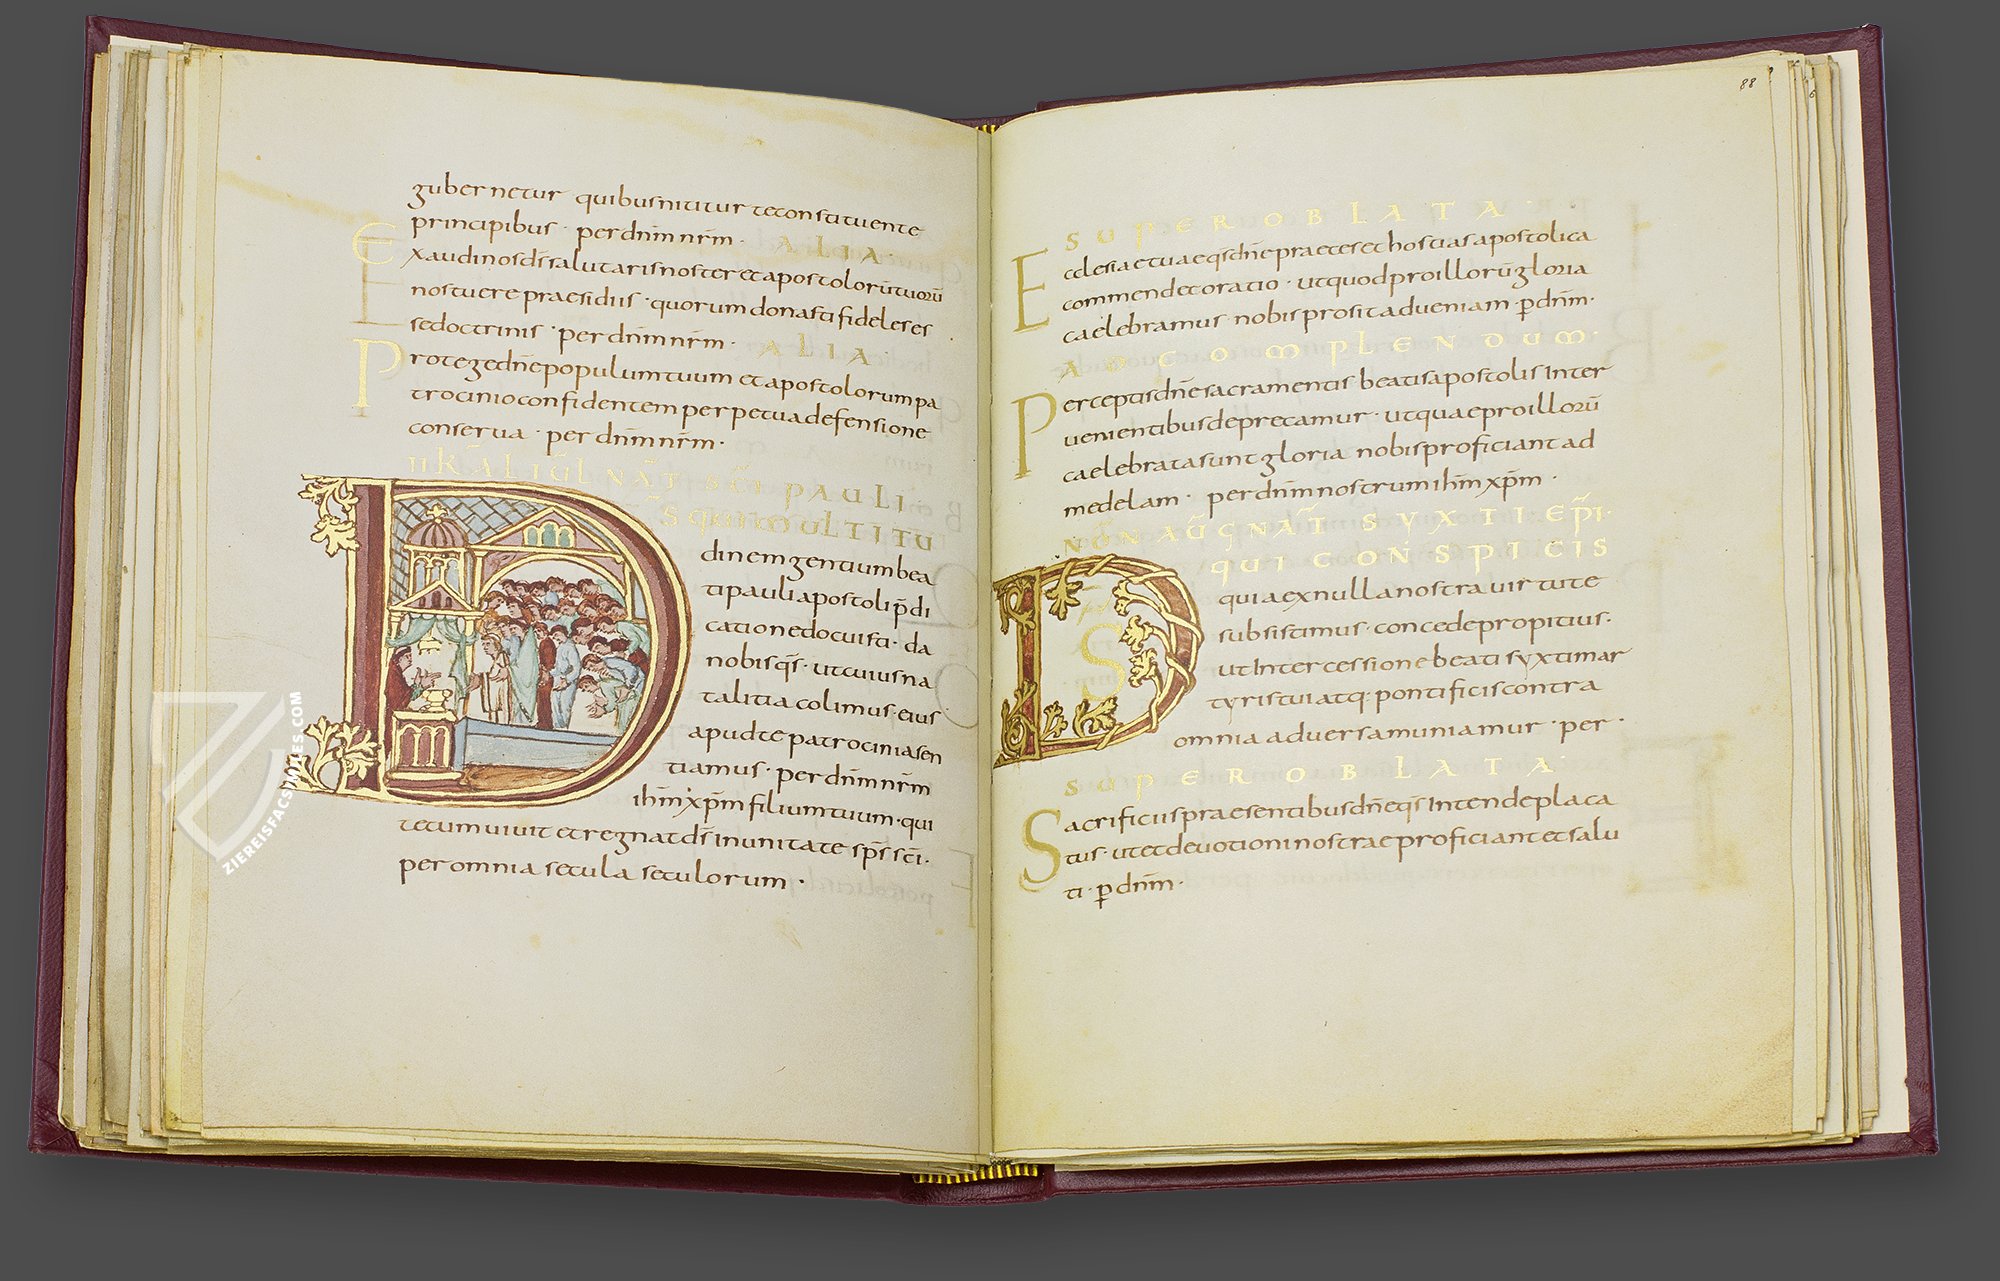 gubernetur · quibusnititur teconstituente
principibus · perdn̄m nr̄m · ALIA ·
Exaudinosds̄salutarisnoster etapostolorūtuorū
nostuere praesidiis · quorum donasti fideles es
sedoctrinis · per dn̄m nr̄m · ALIA
Protegedn̄epopulumtuum etapostolorum pa
trocinioconfidentem perpetuadefensione
conserua · per dn̄m nr̄m ·
II KAL IUL NAT SCI PAULI ·
DS QUI MULTITU
dinem gentium bea
tipauli apostoli p̄di
cationedocuisti · da
nobis qs̄ · utcuius na
talitia colimus · eius
apudte patrocinia sen
tiamus · per dn̄m nr̄m
ihm̄ xp̄m filium tuum · qui
tecum uiuit et regnat ds̄ Inunitate sp̄s sc̄i ·
per omnia secula seculorum ·
88
SUPER OBLATA ·
Ecclesiaetuaeqs̄dn̄epraeces et hostias apostolica
commendetoratio · utquodproillorū gloria
caelebramus · nobis prosit adueniam · p̄ dn̄m ·
AD COMPLENDUM ·
Perceptisdn̄esacramentis beatisapostolis Inter
uenientibusdeprecamur · utquaeproillorū
caelebratasunt gloria nobisproficiant ad
medelam · per dn̄m nostrum ihm̄ xp̄m ·
NON AUG NAT SYXTI EPI ·
DS QUI CONSPICIS
quiaexnullanostrauirtute
subsistimus · concedepropitius ·
utIntercessionebeati syxtimar
tyristuiatq; pontificiscontra
omnia aduersa muniamur · per ·
SUPER OBLATA ·
Sacrificiispraesentibusdn̄eqs̄ Intendeplaca
tus · utetdeuotioninostrae proficiantetsalu
ti · p̄ dn̄m ·
ZIEREISFACSIMILES.COM